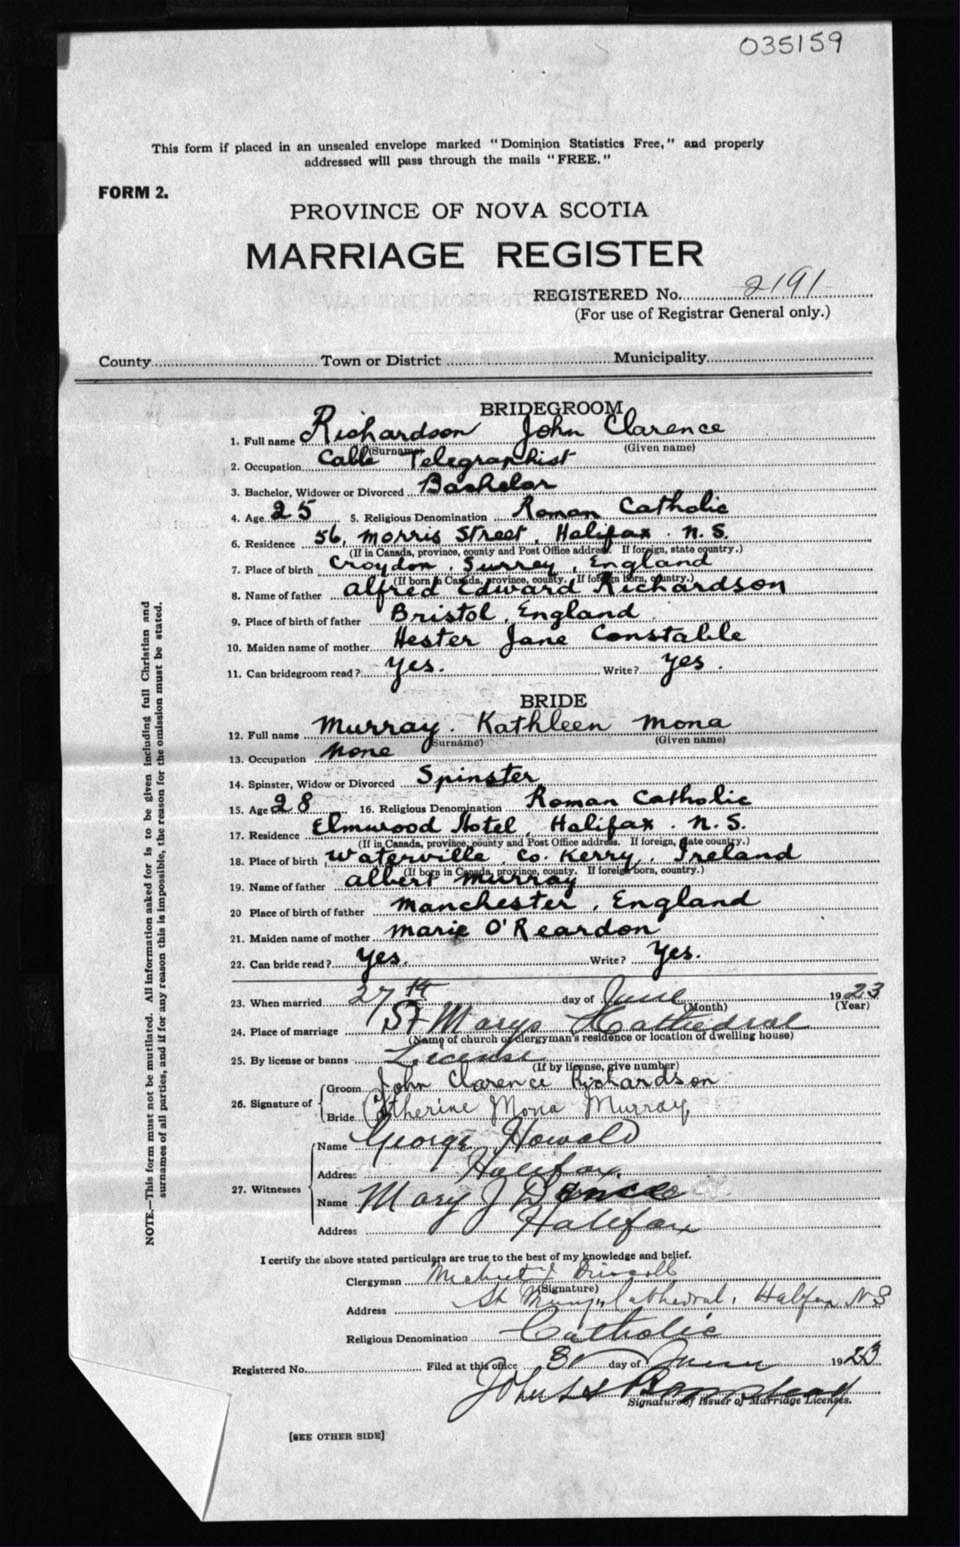 035159
This form if placed in an unsealed envelope marked "Dominion Statistics Free," and properly
addressed will pass through the mails "FREE."
FORM 2.
PROVINCE OF NOVA SCOTIA
MARRIAGE REGISTER
REGISTERED No. 2191
(For use of Registrar General only.)
County Town or District Municipality
BRIDEGROOM
1. Full name Richardson John Clarence
(Surname) (Given name)
2. Occupation Cable Telegraphist
3. Bachelor, Widower or Divorced Bachelor
4. Age 25 5. Religious Denomination Roman Catholic
6. Residence 56, Morris Street, Halifax. N.S.
(If in Canada, province, county and Post Office address. If foreign, state country.)
7. Place of birth Croydon, Surrey, England
(If born in Canada, province, county. If foreign born, country.)
8. Name of father Alfred Edward Richardson
9. Place of birth of father Bristol, England
10. Maiden name of mother Hester Jane Constable
11. Can bridegroom read? Yes. Write? Yes.
BRIDE
12. Full name Murray. Kathleen Mona
(Surname) (Given name)
13. Occupation None
14. Spinster, Widow or Divorced Spinster
15. Age 28 16. Religious Denomination Roman Catholic
17. Residence Elmwood Hotel, Halifax. N.S.
(If in Canada, province, county and Post Office address. If foreign, state country.)
18. Place of birth Waterville, Co. Kerry, Ireland
(If born in Canada, province, county. If foreign born, country.)
19. Name of father Albert Murray
20 Place of birth of father Manchester, England
21. Maiden name of mother Marie O'Reardon
22. Can bride read? Yes. Write? Yes.
23. When married 27th day of June 1923
(Month) (Year)
24. Place of marriage St Marys Cathedral
(Name of church or clergyman's residence or location of dwelling house)
25. By license or banns License
(If by license, give number)
26. Signature of Groom John Clarence Richardson
Bride Catherine Mona Murray
27. Witnesses Name George Howald
Address Halifax
Name Mary J
Address Halifax
I certify the above stated particulars are true to the best of my knowledge and belief.
Clergyman Driscoll
(Signature)
Address St Mary's Cathedral, Halifax N S
Religious Denomination Catholic
Registered No. Filed at this office day of 1923
John
Signature of Issuer of Marriage Licenses.
[SEE OTHER SIDE]
NOTE.—This form must not be mutilated. All information asked for is to be given including full Christian and
surnames of all parties, and if for any reason this is impossible, the reason for the omission must be stated.